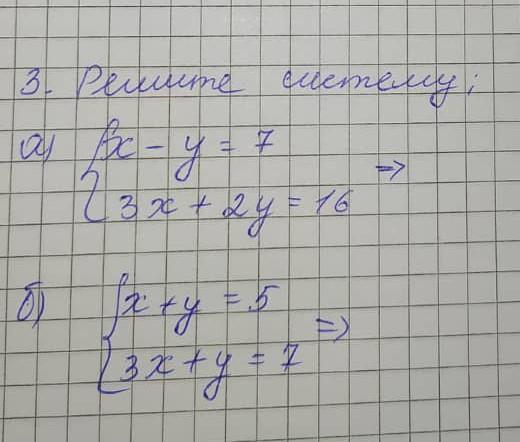 3. Решите систему;
а) { x - y = 7
{ 3x + 2y = 16 =>
б) { x + y = 5
{ 3x + y = 7 =>